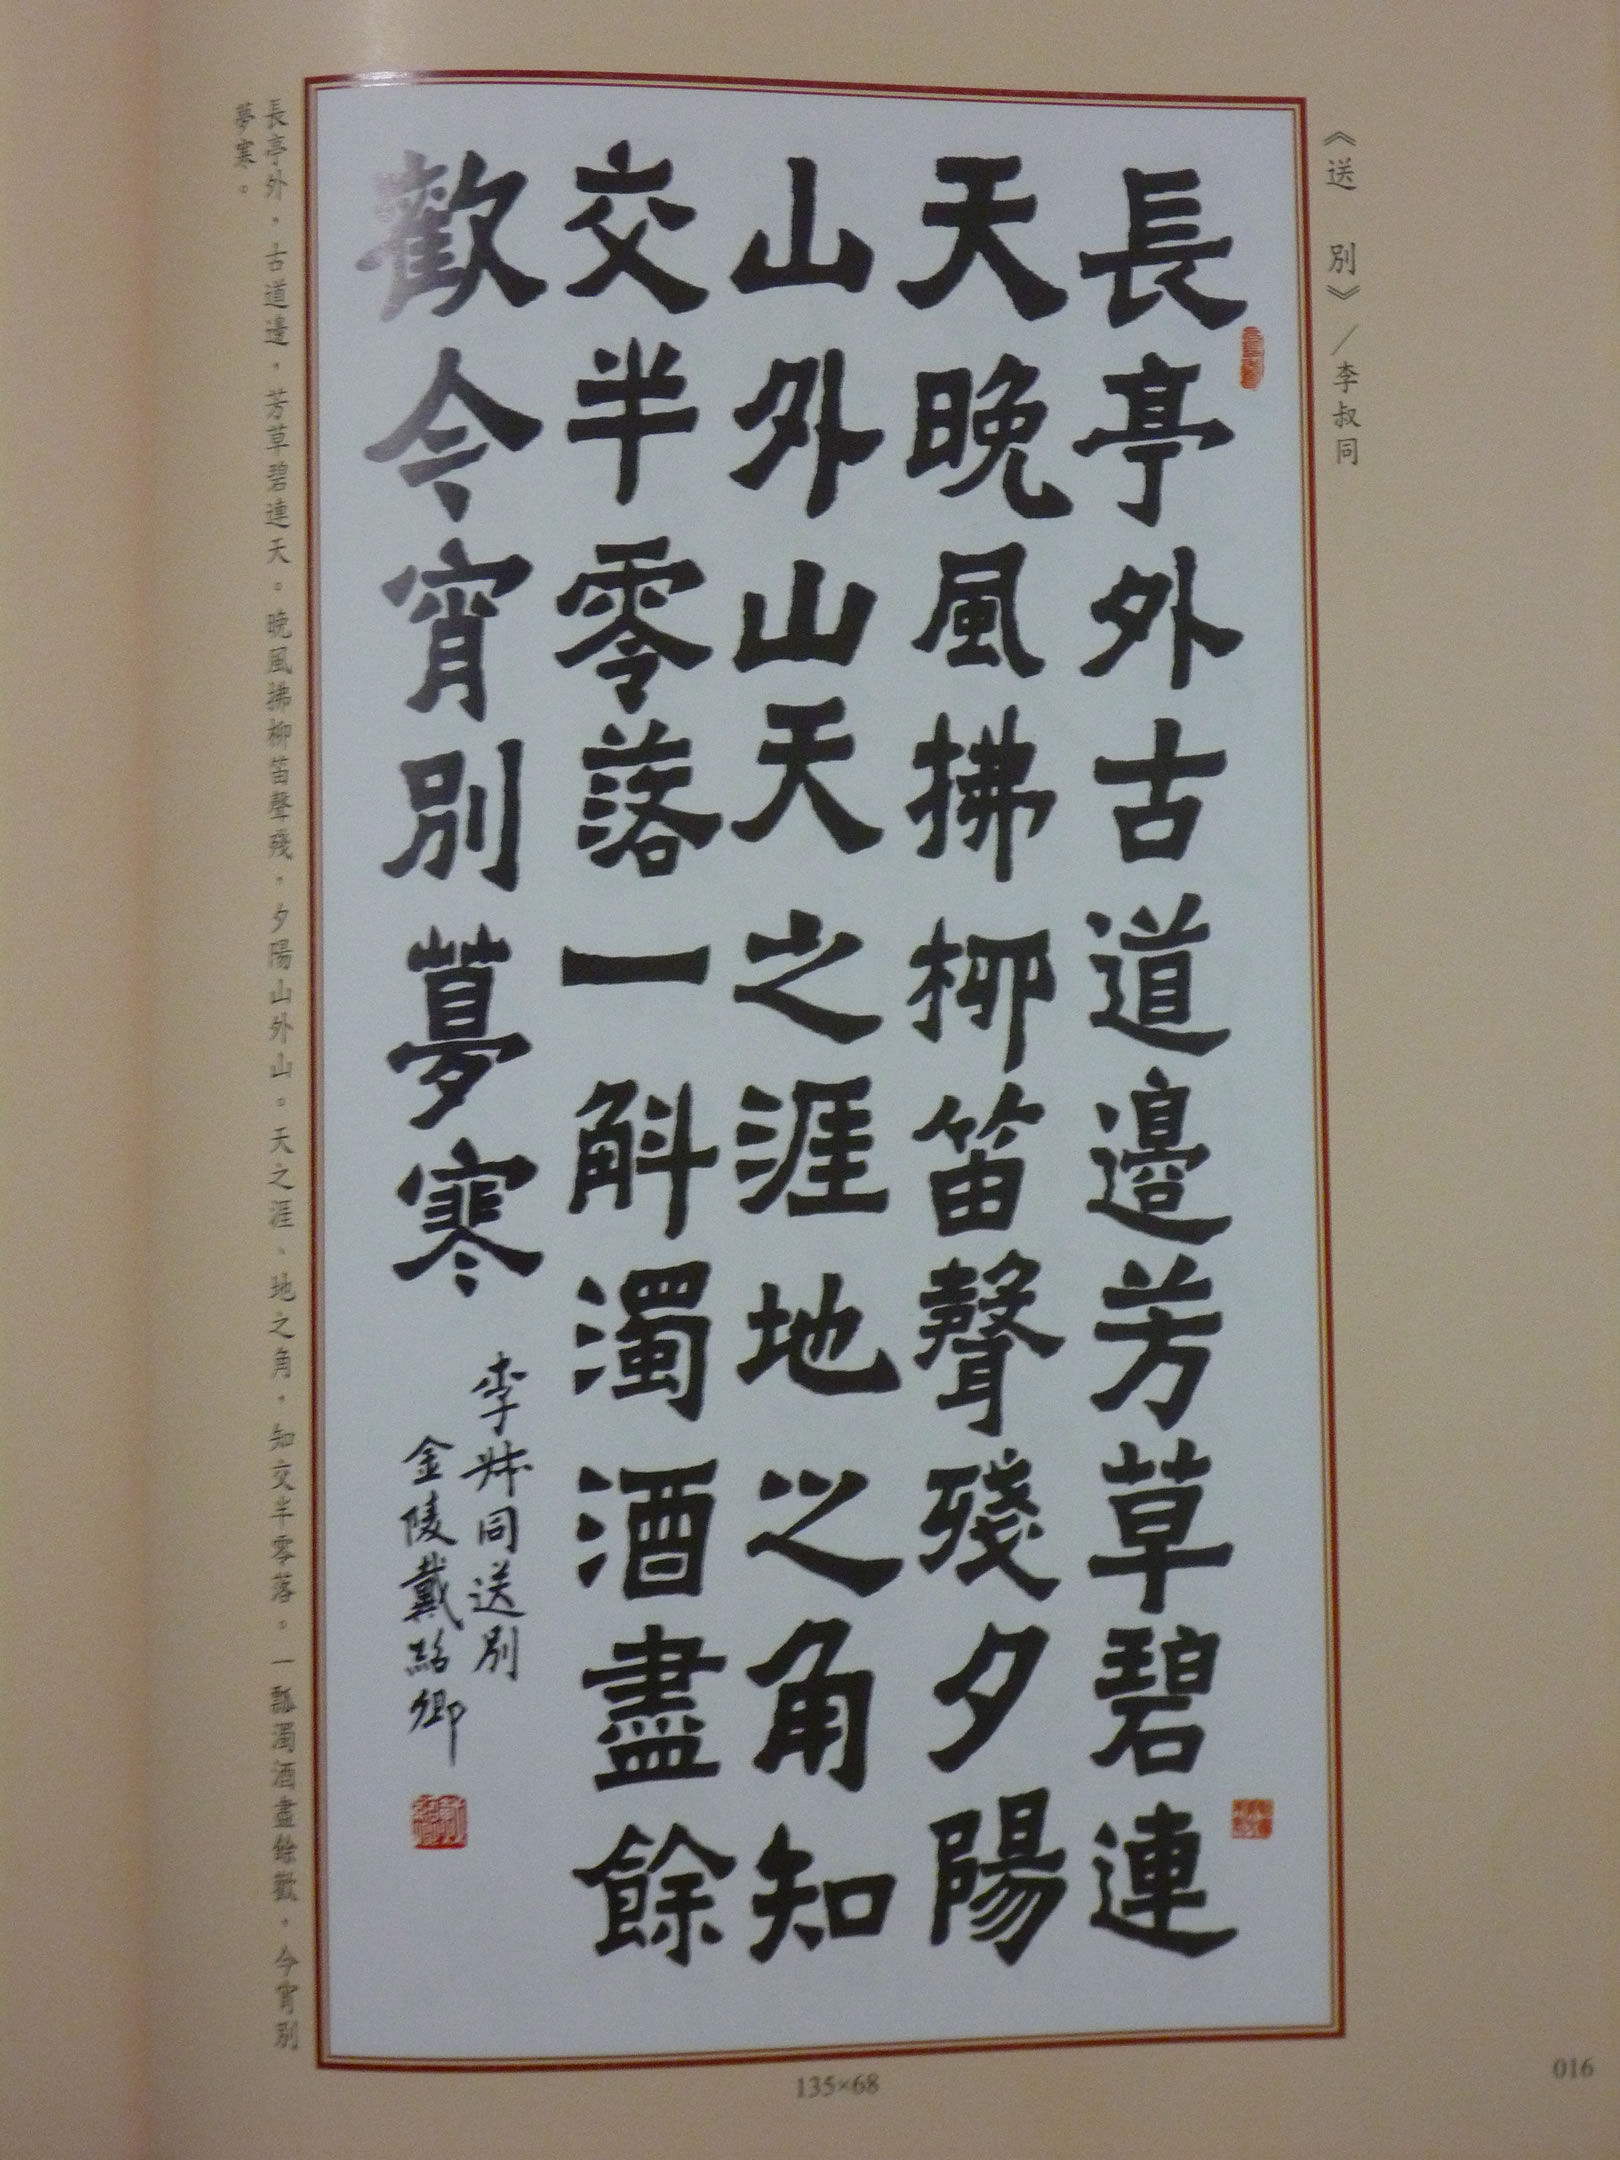 《送 別》／李叔同
長亭外古道邊芳草碧連
天晚風拂柳笛聲殘夕陽
山外山天之涯地之角知
交半零落一斛濁酒盡餘
歡今宵別夢寒
李叔同送別
金陵戴紹卿
長亭外，古道邊，芳草碧連天。晚風拂柳笛聲殘，夕陽山外山。天之涯、地之角，知交半零落。一瓢濁酒盡餘歡，今宵別
夢寒。
135×68
016